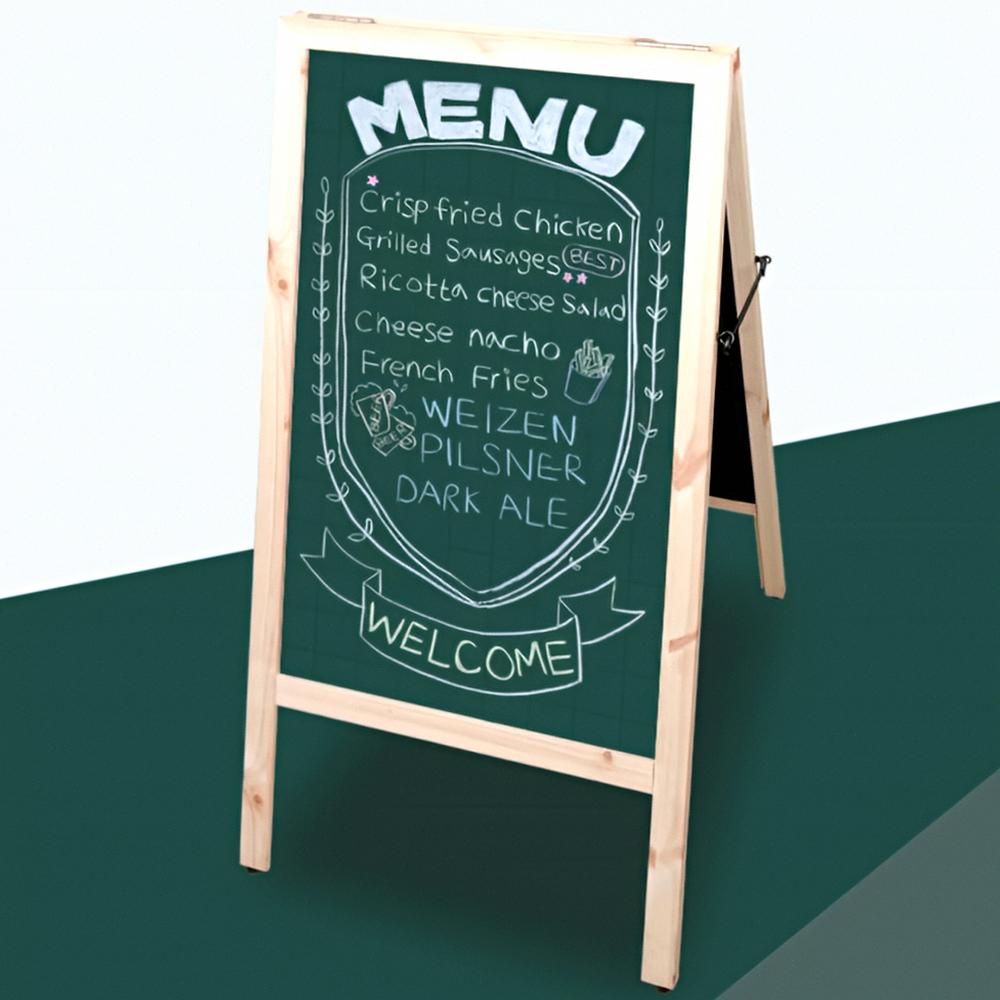 MENU
Crisp fried Chicken
Grilled Sausages BEST
Ricotta cheese Salad
Cheese nacho
French Fries
BEER
BEER
WEIZEN
PILSNER
DARK ALE
WELCOME